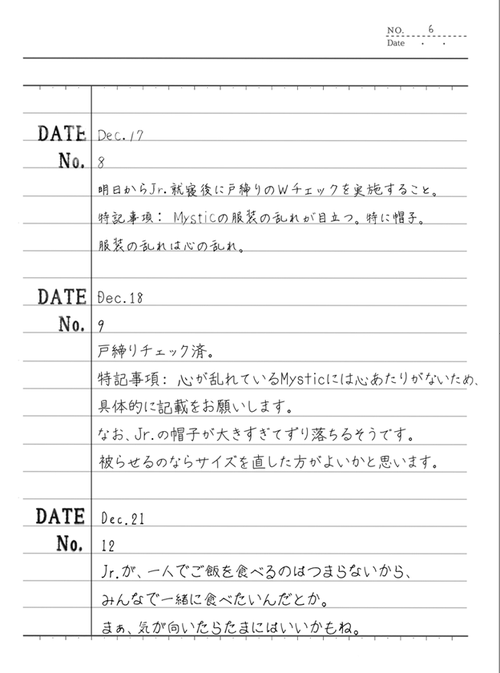 NO. 6
Date ・ ・
DATE Dec.17
No. 8
明日からJr.就寝後に戸締りのWチェックを実施すること。
特記事項： Mysticの服装の乱れが目立つ。特に帽子。
服装の乱れは心の乱れ。
DATE Dec.18
No. 9
戸締りチェック済。
特記事項： 心が乱れているMysticには心あたりがないため、
具体的に記載をお願いします。
なお、Jr.の帽子が大きすぎてずり落ちるそうです。
被らせるのならサイズを直した方がよいかと思います。
DATE Dec.21
No. 12
Jr.が、一人でご飯を食べるのはつまらないから、
みんなで一緒に食べたいんだとか。
まぁ、気が向いたらたまにはいいかもね。